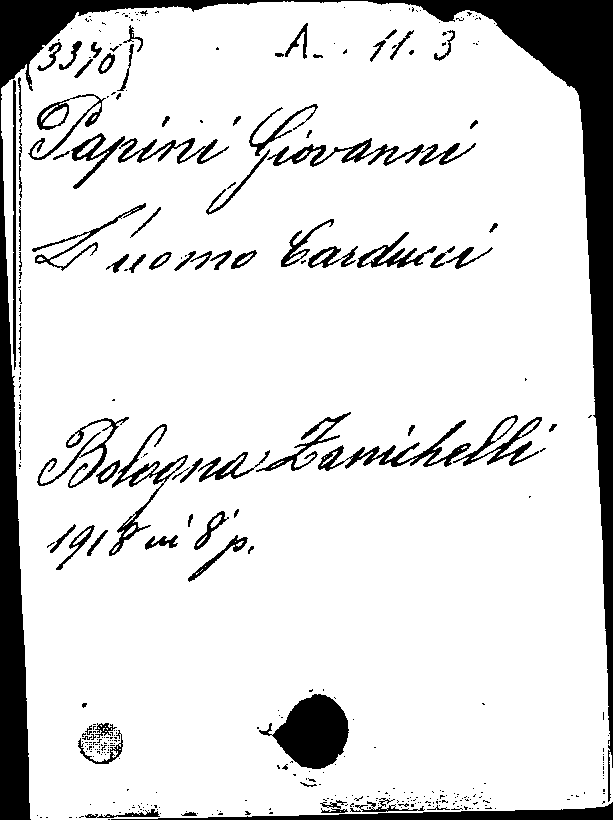 (3370) A. 11. 3
Papini Giovanni
L'uomo Carducci
Bologna Zanichelli
1918 in 8° p.